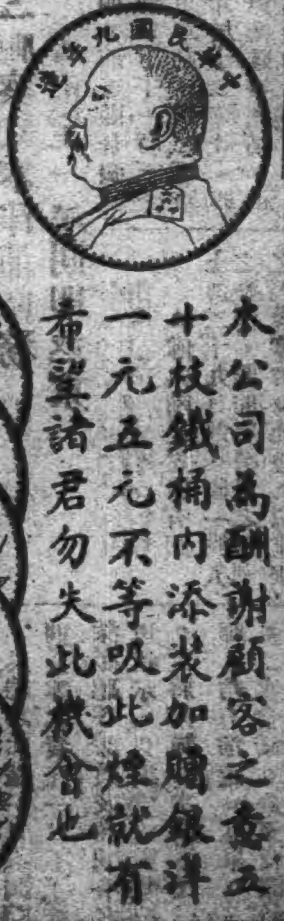 中華民國九年造
本公司為酬謝顧客之意五
十枝鐵桶內添裝加贈銀洋
一元五元不等吸此煙就有
希望諸君勿失此機會也